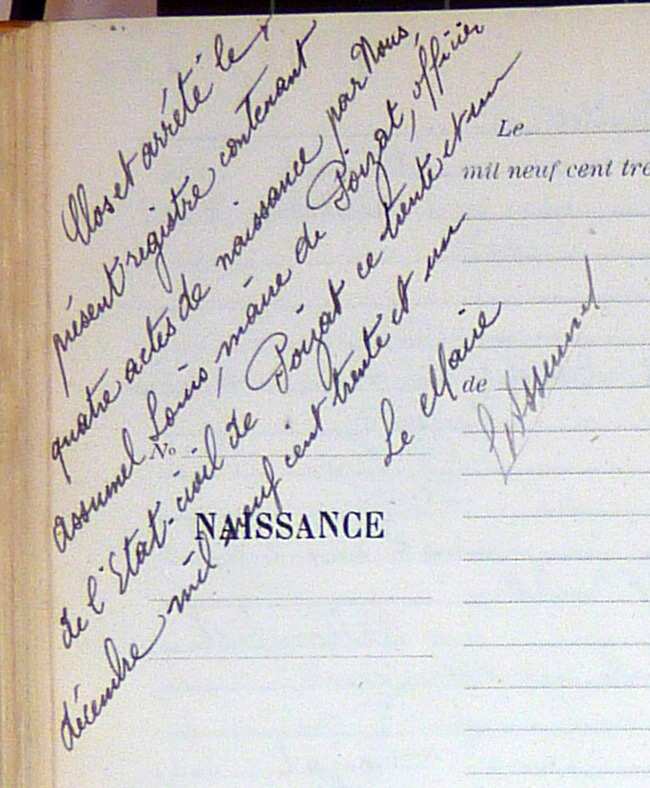 Clos et arrêté le
présent registre contenant
quatre actes de naissance par Nous,
Assumel Louis, maire de Poizat, officier
de l'Etat-civil de Poizat ce trente et un
décembre mil neuf cent trente et un
Le Maire
Le
mil neuf cent tre
de
No
NAISSANCE